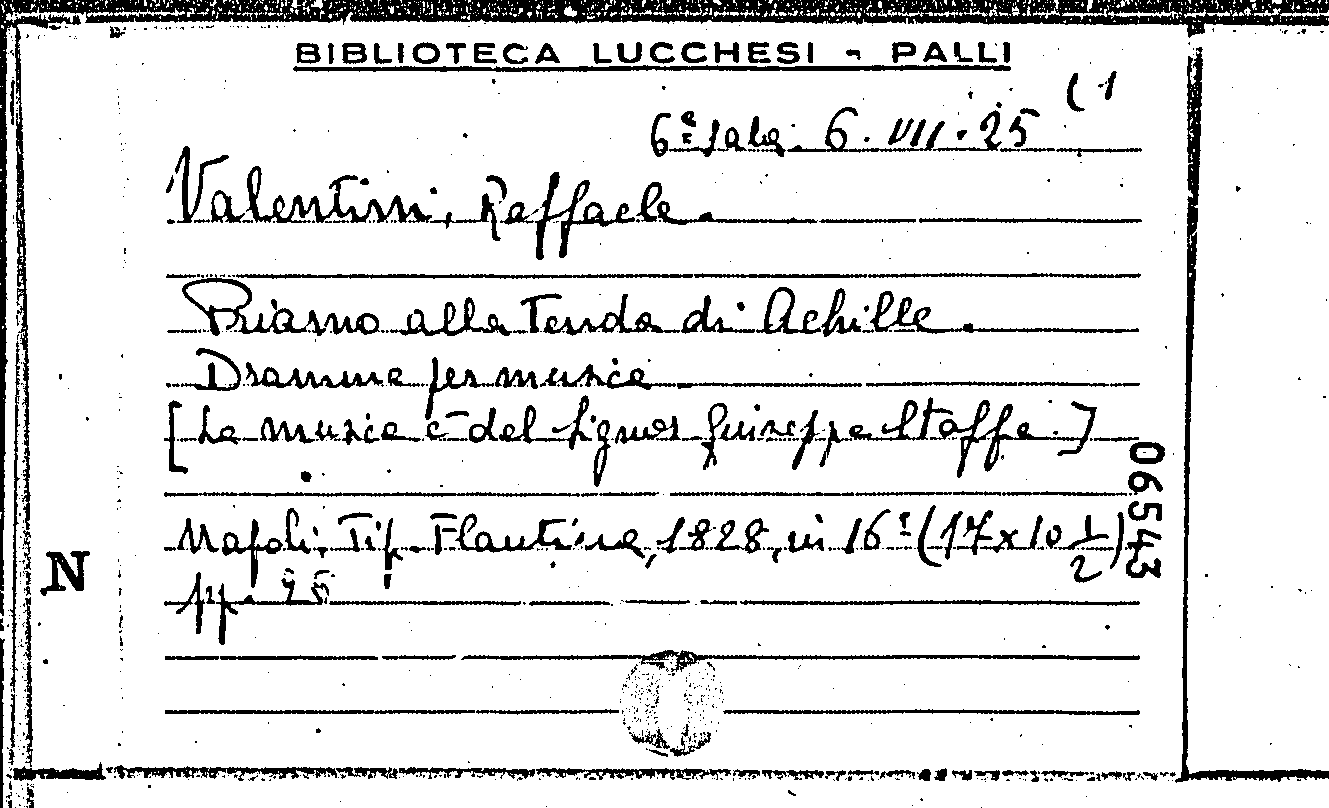 BIBLIOTECA LUCCHESI - PALLI
6ª Sala. 6. VII. 25 (1
Valentini, Raffaele.
Priamo alla Tenda di Achille.
Dramma per musica
[La musica è del signor Giuseppe Staffa.]
06543
Napoli, Tip. Flautina, 1828, in 16º (17x10 1/2)
N
pp.